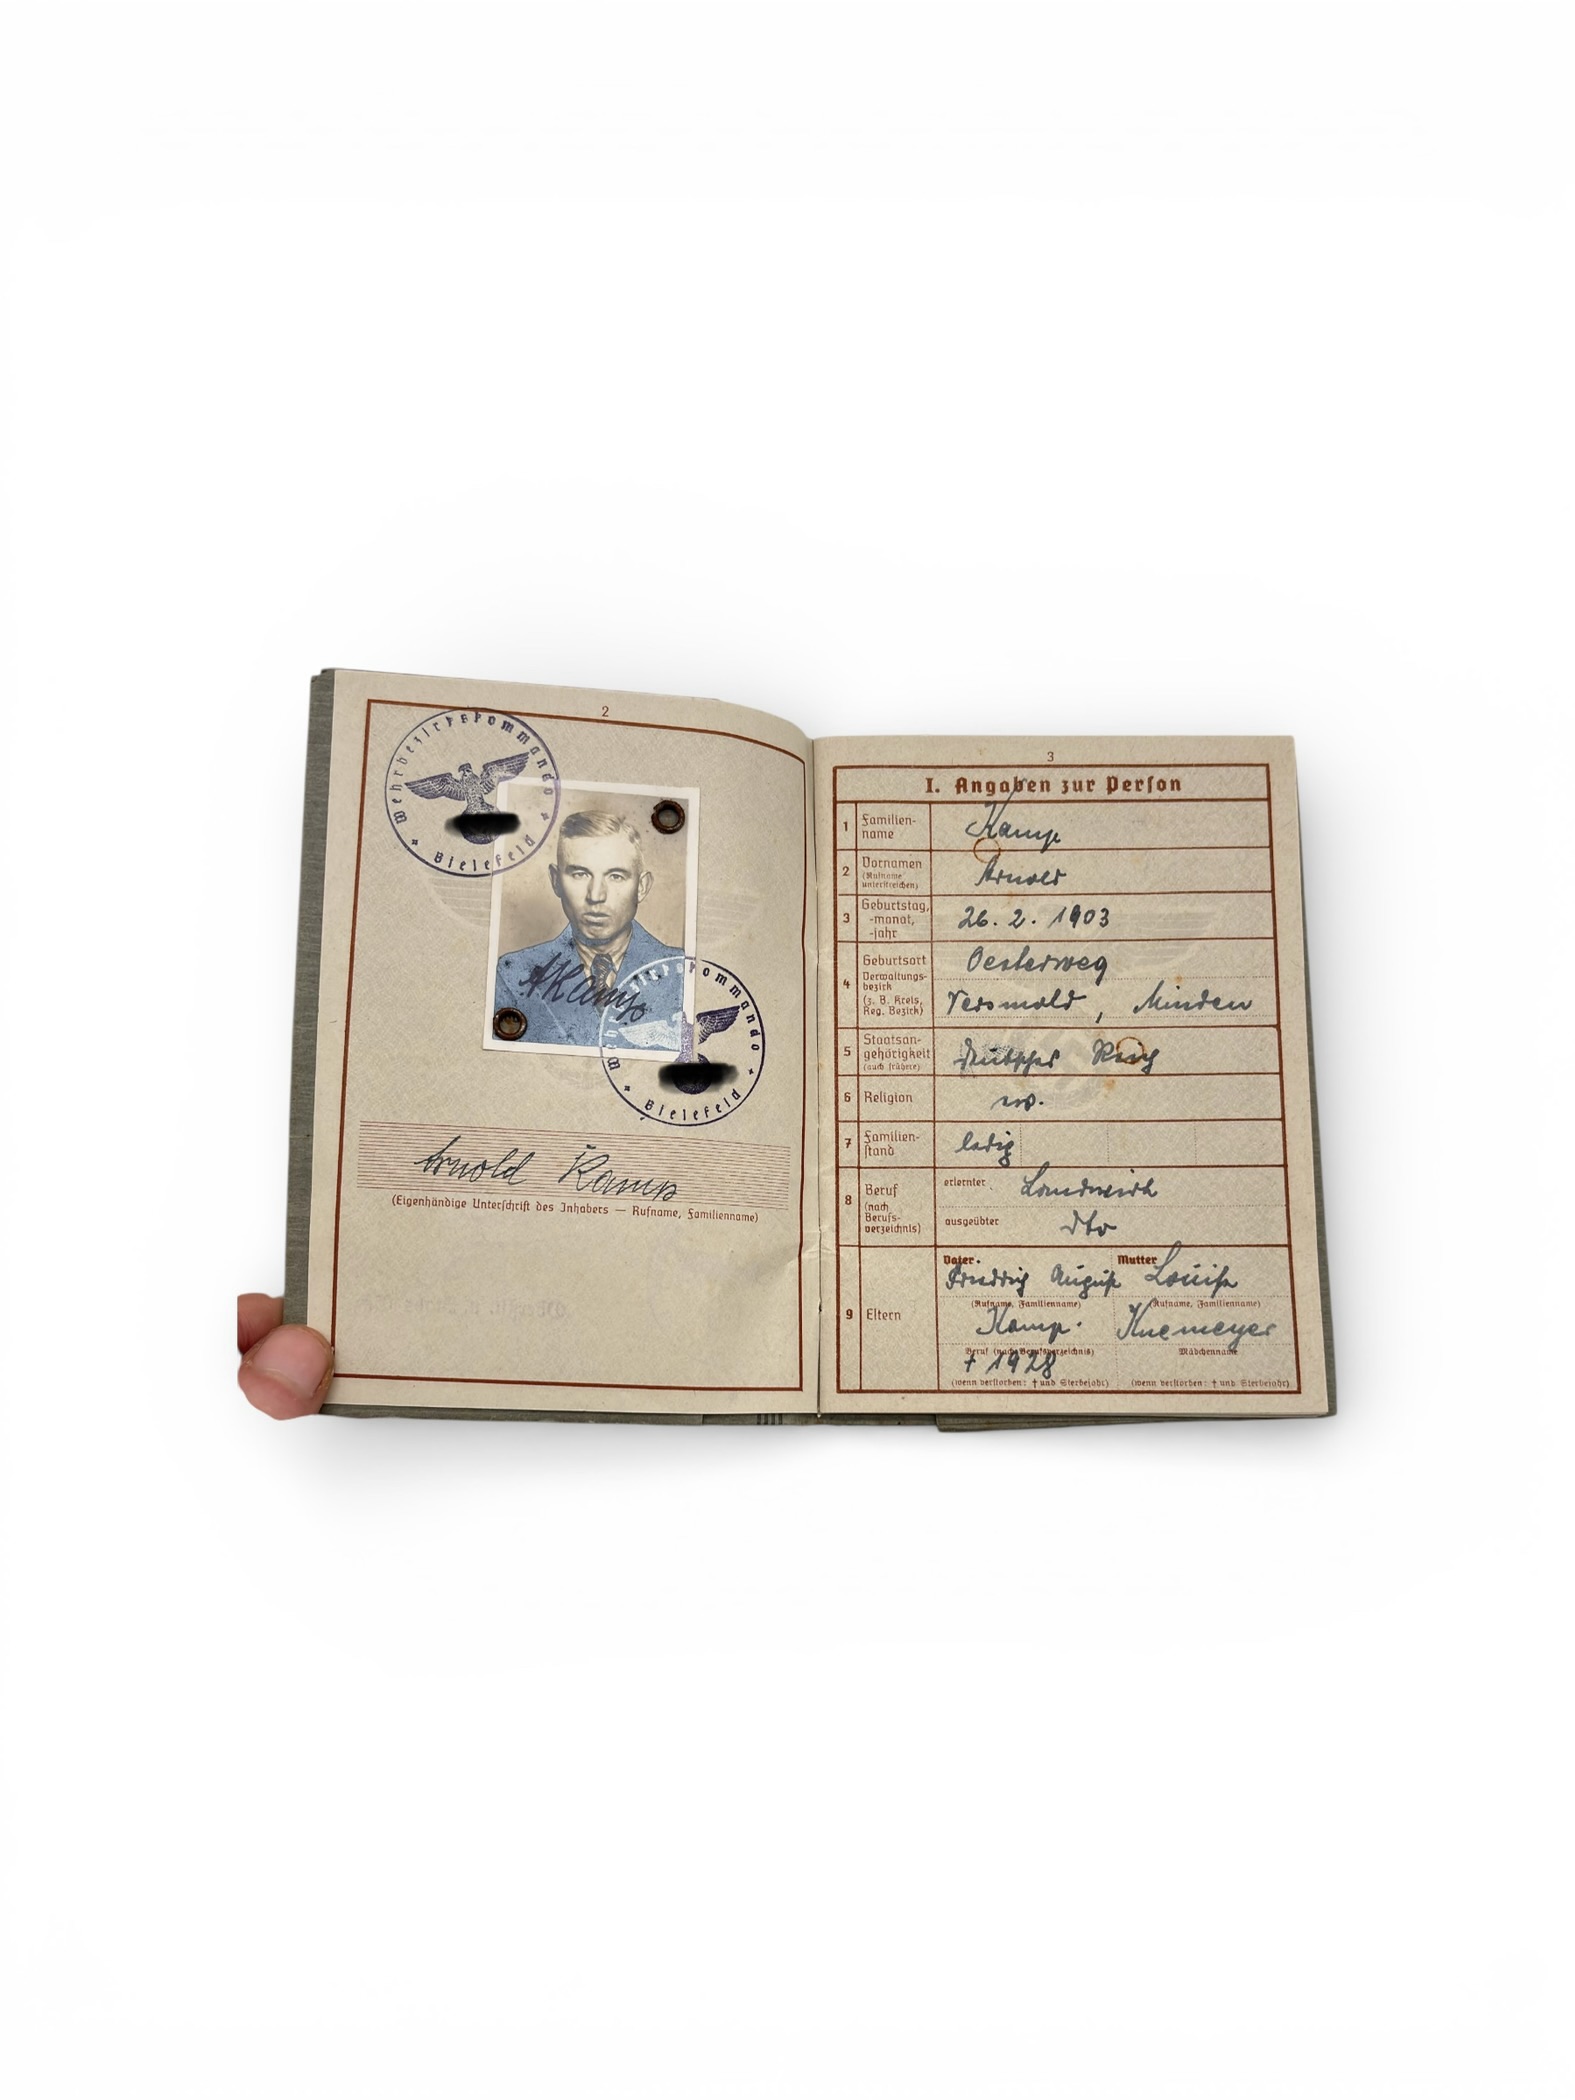 2
Wehrbezirkskommando
Bielefeld
AKamp
Wehrbezirkskommando
Bielefeld
Arnold Kamp
(Eigenhändige Unterschrift des Inhabers — Rufname, Familienname)
3
I. Angaben zur Person
1 Familien-
name
Kamp
2 Vornamen
(Rufname
unterstreichen)
Arnold
3 Geburtstag,
-monat,
-jahr
26. 2. 1903
4 Geburtsort
Verwaltungs-
bezirk
(z. B. Kreis,
Reg. Bezirk)
Oesterweg
Versmold, Minden
5 Staatsan-
gehörigkeit
(auch frühere)
Deutsches Reich
6 Religion
ev.
7 Familien-
stand
ledig
8 Beruf
(nach
Berufs-
verzeichnis)
erlernter Landwirth
ausgeübter dto
9 Eltern
Vater Mutter
Friedrich August Louise
(Rufname, Familienname) (Rufname, Familienname)
Kamp. Knemeyer
Beruf (nach Berufsverzeichnis) Mädchenname
† 1928
(wenn verstorben: † und Sterbejahr) (wenn verstorben: † und Sterbejahr)